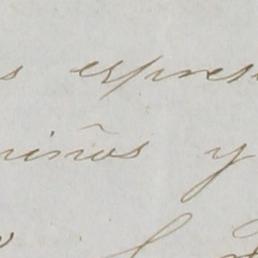 s expres
niños y